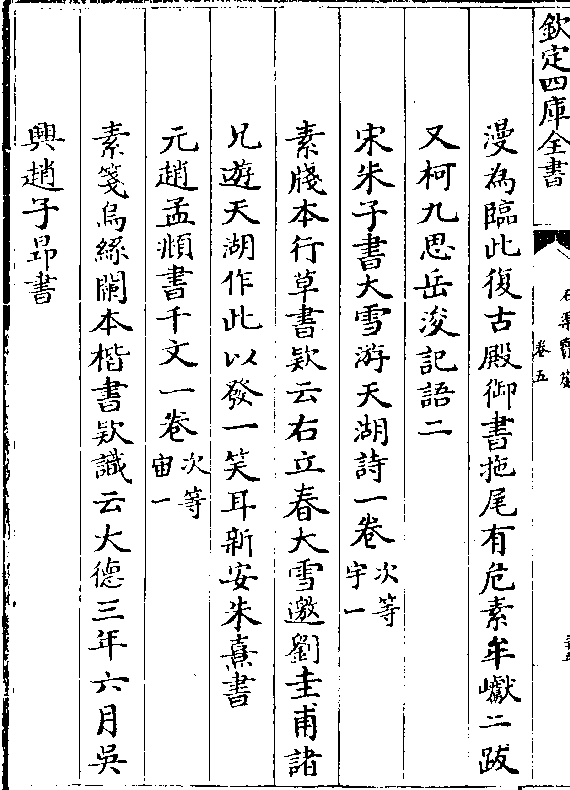 欽定四庫全書
石渠寶笈
卷五
漫為臨此復古殿御書拖尾有危素牟巘二跋
又柯九思岳浚記語二
宋朱子書大雪游天湖詩一卷 次等 宇一
素牋本行草書欵云右立春大雪邀劉圭甫諸
兄遊天湖作此以發一笑耳新安朱熹書
元趙孟頫書千文一卷 次等 宙一
素箋烏絲闌本楷書欵識云大德三年六月吳
興趙子昻書